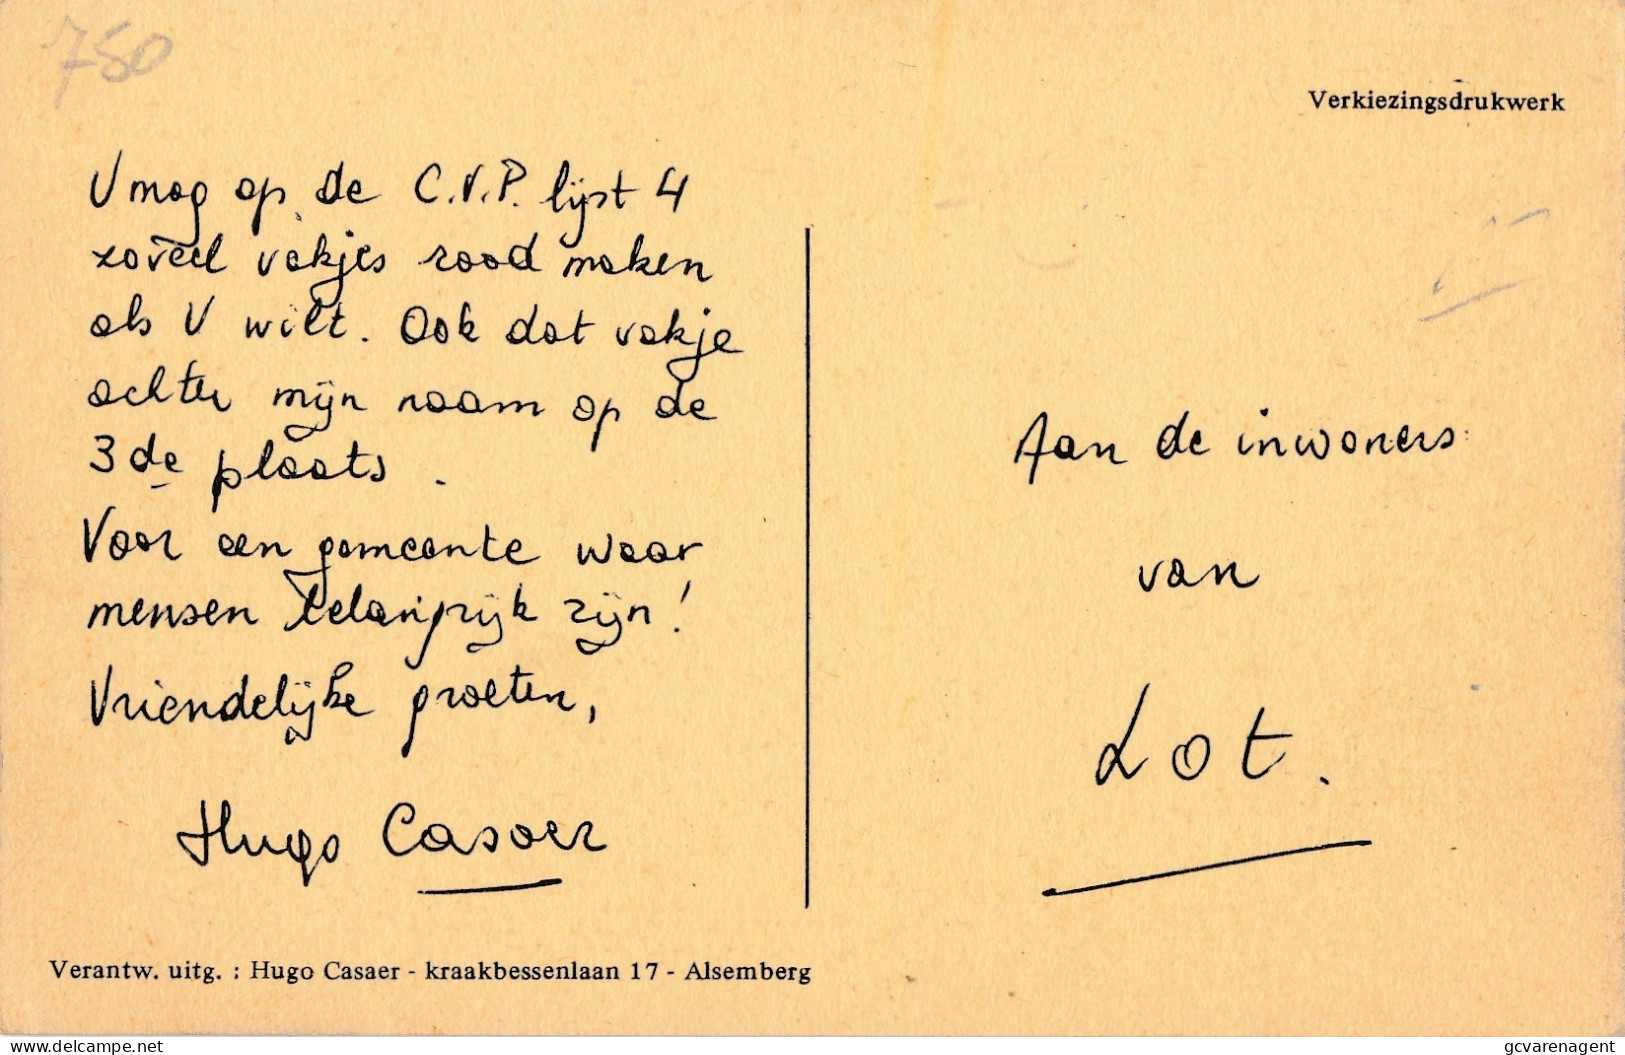 750
Verkiezingsdrukwerk
U mag op de C.V.P. lijst 4
zoveel vakjes rood maken
als U wilt. Ook dat vakje
achter mijn naam op de
3de plaats.
Voor een gemeente waar
mensen belangrijk zijn!
Vriendelijke groeten,
Hugo Casaer
Aan de inwoners
van
Lot.
Verantw. uitg. : Hugo Casaer - kraakbessenlaan 17 - Alsemberg
www.delcampe.net
gcvarenagent